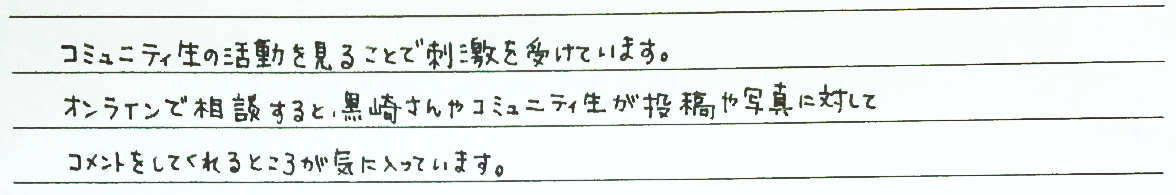 コミュニティ生の活動を見ることで刺激を受けています。
オンラインで相談すると、黒崎さんやコミュニティ生が投稿や写真に対して
コメントをしてくれるところが気に入っています。